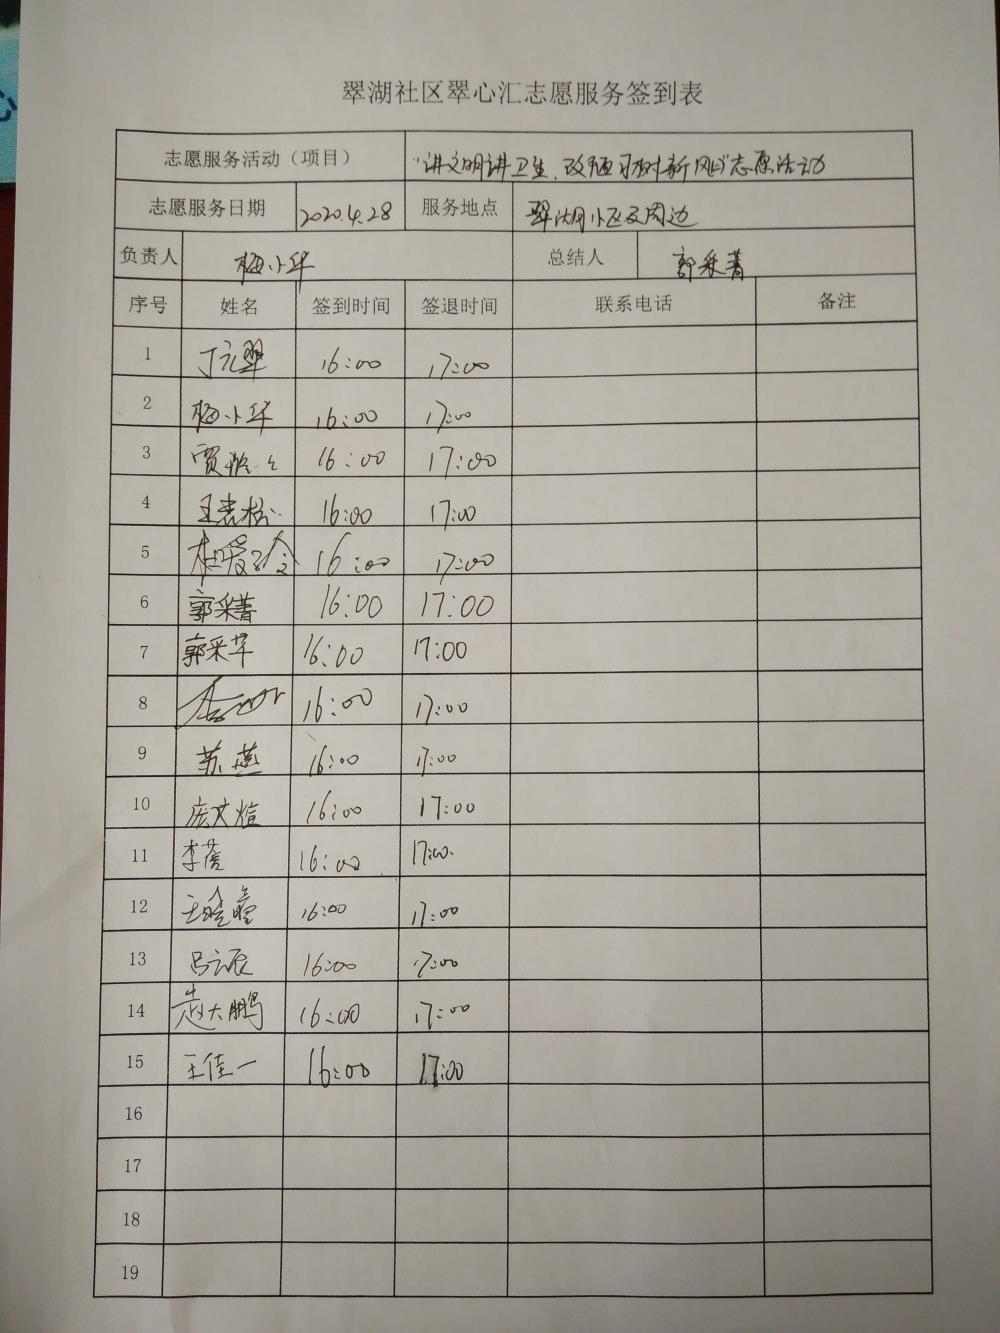 翠湖社区翠心汇志愿服务签到表
志愿服务活动（项目） "讲文明讲卫生，改陋习树新风"志愿活动
志愿服务日期 2020.4.28 服务地点 翠湖小区及周边
负责人 梅小华 总结人 郭采菁
序号 姓名 签到时间 签退时间 联系电话 备注
1 丁元翠 16:00 17:00
2 梅小华 16:00 17:00
3 贾 16:00 17:00
4 王 16:00 17:00
5 杜爱玲 16:00 17:00
6 郭采菁 16:00 17:00
7 郭采苹 16:00 17:00
8 16:00 17:00
9 苏燕 16:00 17:00
10 庞文煊 16:00 17:00
11 李蓓 16:00 17:00
12 王晓瞳 16:00 17:00
13 吕云辰 16:00 17:00
14 赵大鹏 16:00 17:00
15 王佳一 16:00 17:00
16
17
18
19
心